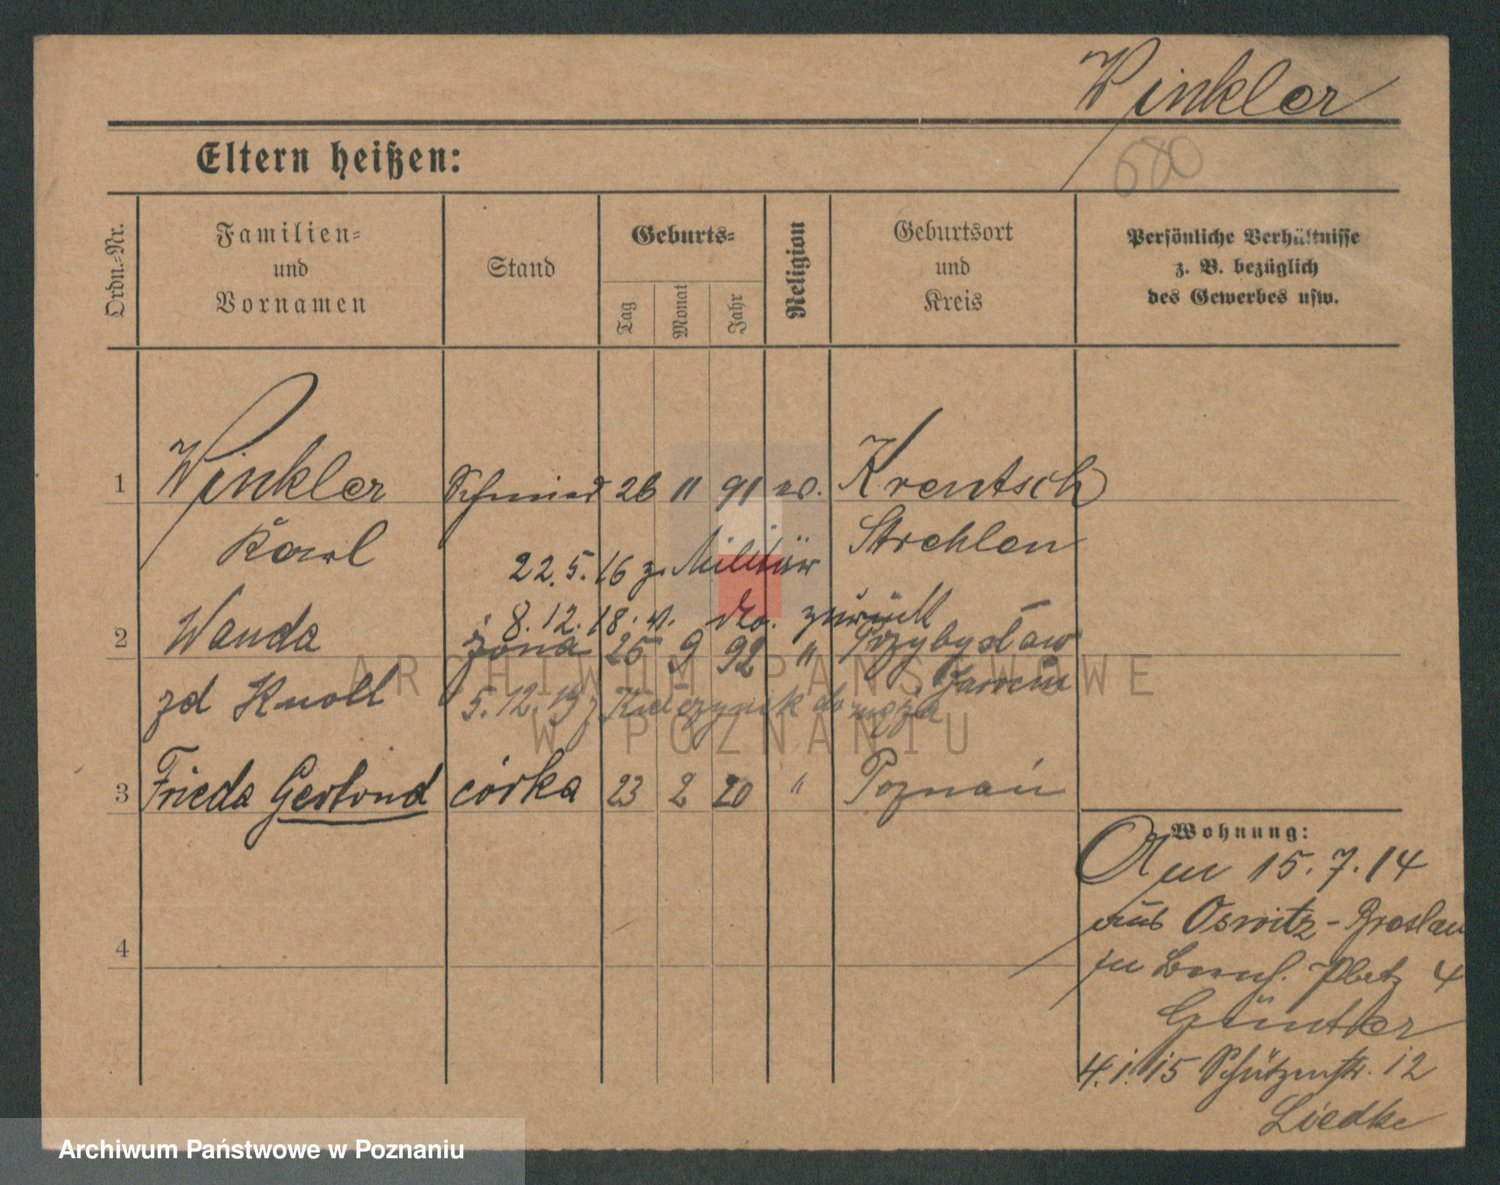 Winkler
680
Eltern heißen:
Ordn.-Nr.
Familien- und Vornamen
Stand
Geburts-
Tag
Monat
Jahr
Religion
Geburtsort und Kreis
Persönliche Verhältnisse z. B. bezüglich des Gewerbes usw.
1 Winkler Schmied 26 11 91 ev. Krentsch
Karl Strehlen
22.5.16 z. Militär
8.12.18. v. do. zurück
2 Wanda żona 25 9 92 " Przybysław
zd Knoll Jarocin
5.12.19 z do męża
3 Frieda Gertrud córka 23 2 20 " Poznań
4
Wohnung:
Am 15.7.14
aus Oswitz-Breslau
Platz 4
Günther
4.1.15 Schützenstr. 12
Liedke
ARCHIWUM PAŃSTWOWE
W POZNANIU
Archiwum Państwowe w Poznaniu